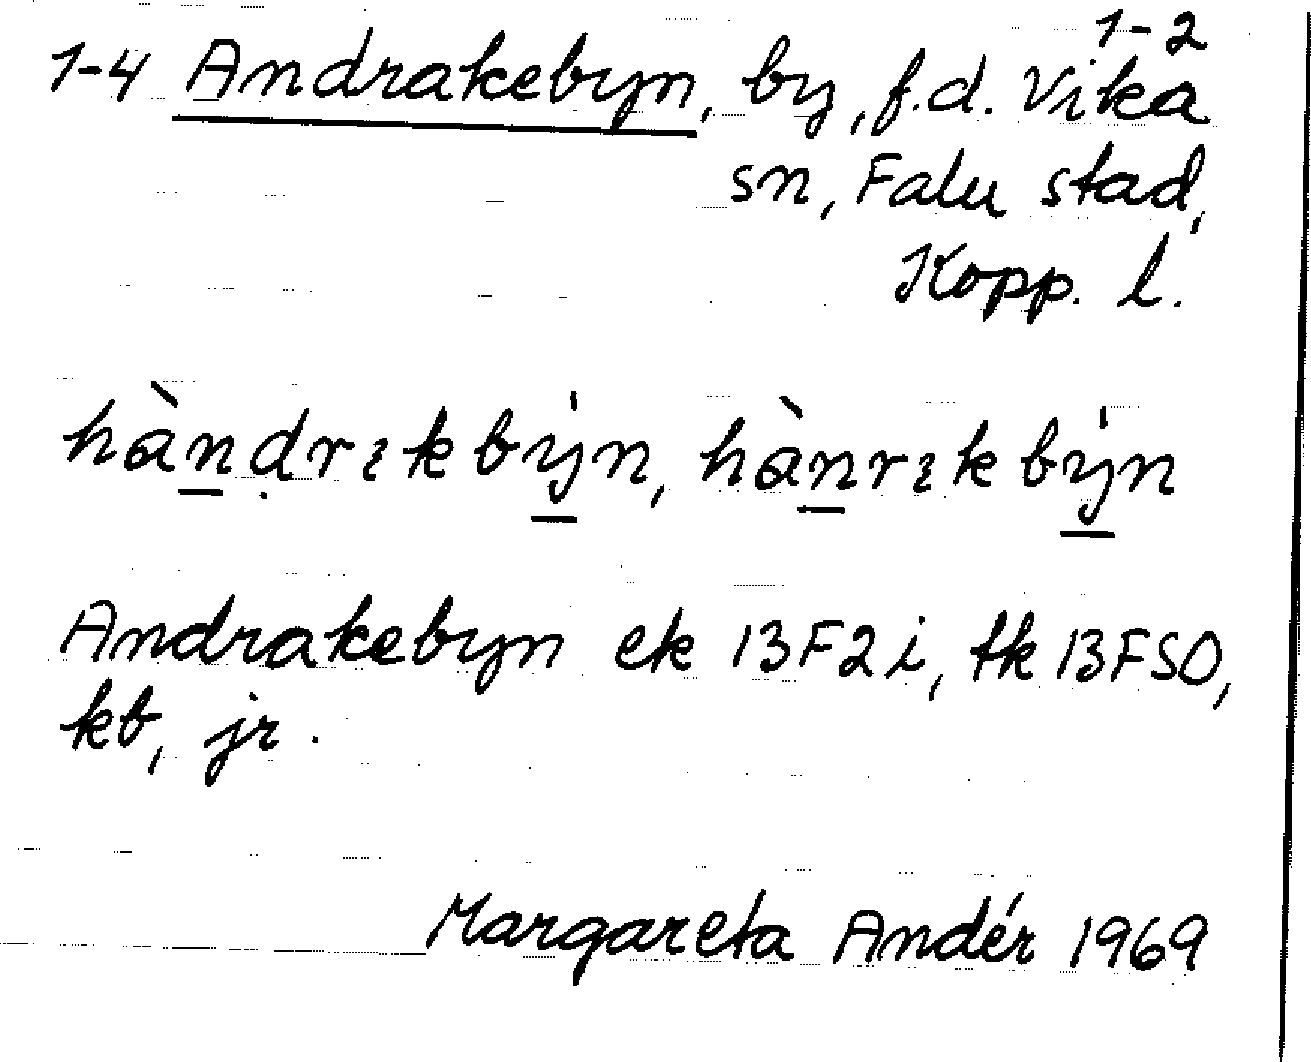 1-2
1-4 Andrakebyn, by, f.d. Vika
sn, Falu stad,
Kopp. l.
hàndrɩkbýn, hànrɩkbýn
Andrakebyn ek 13F2i, tk 13FSO,
kb, jr.
Margareta Andér 1969